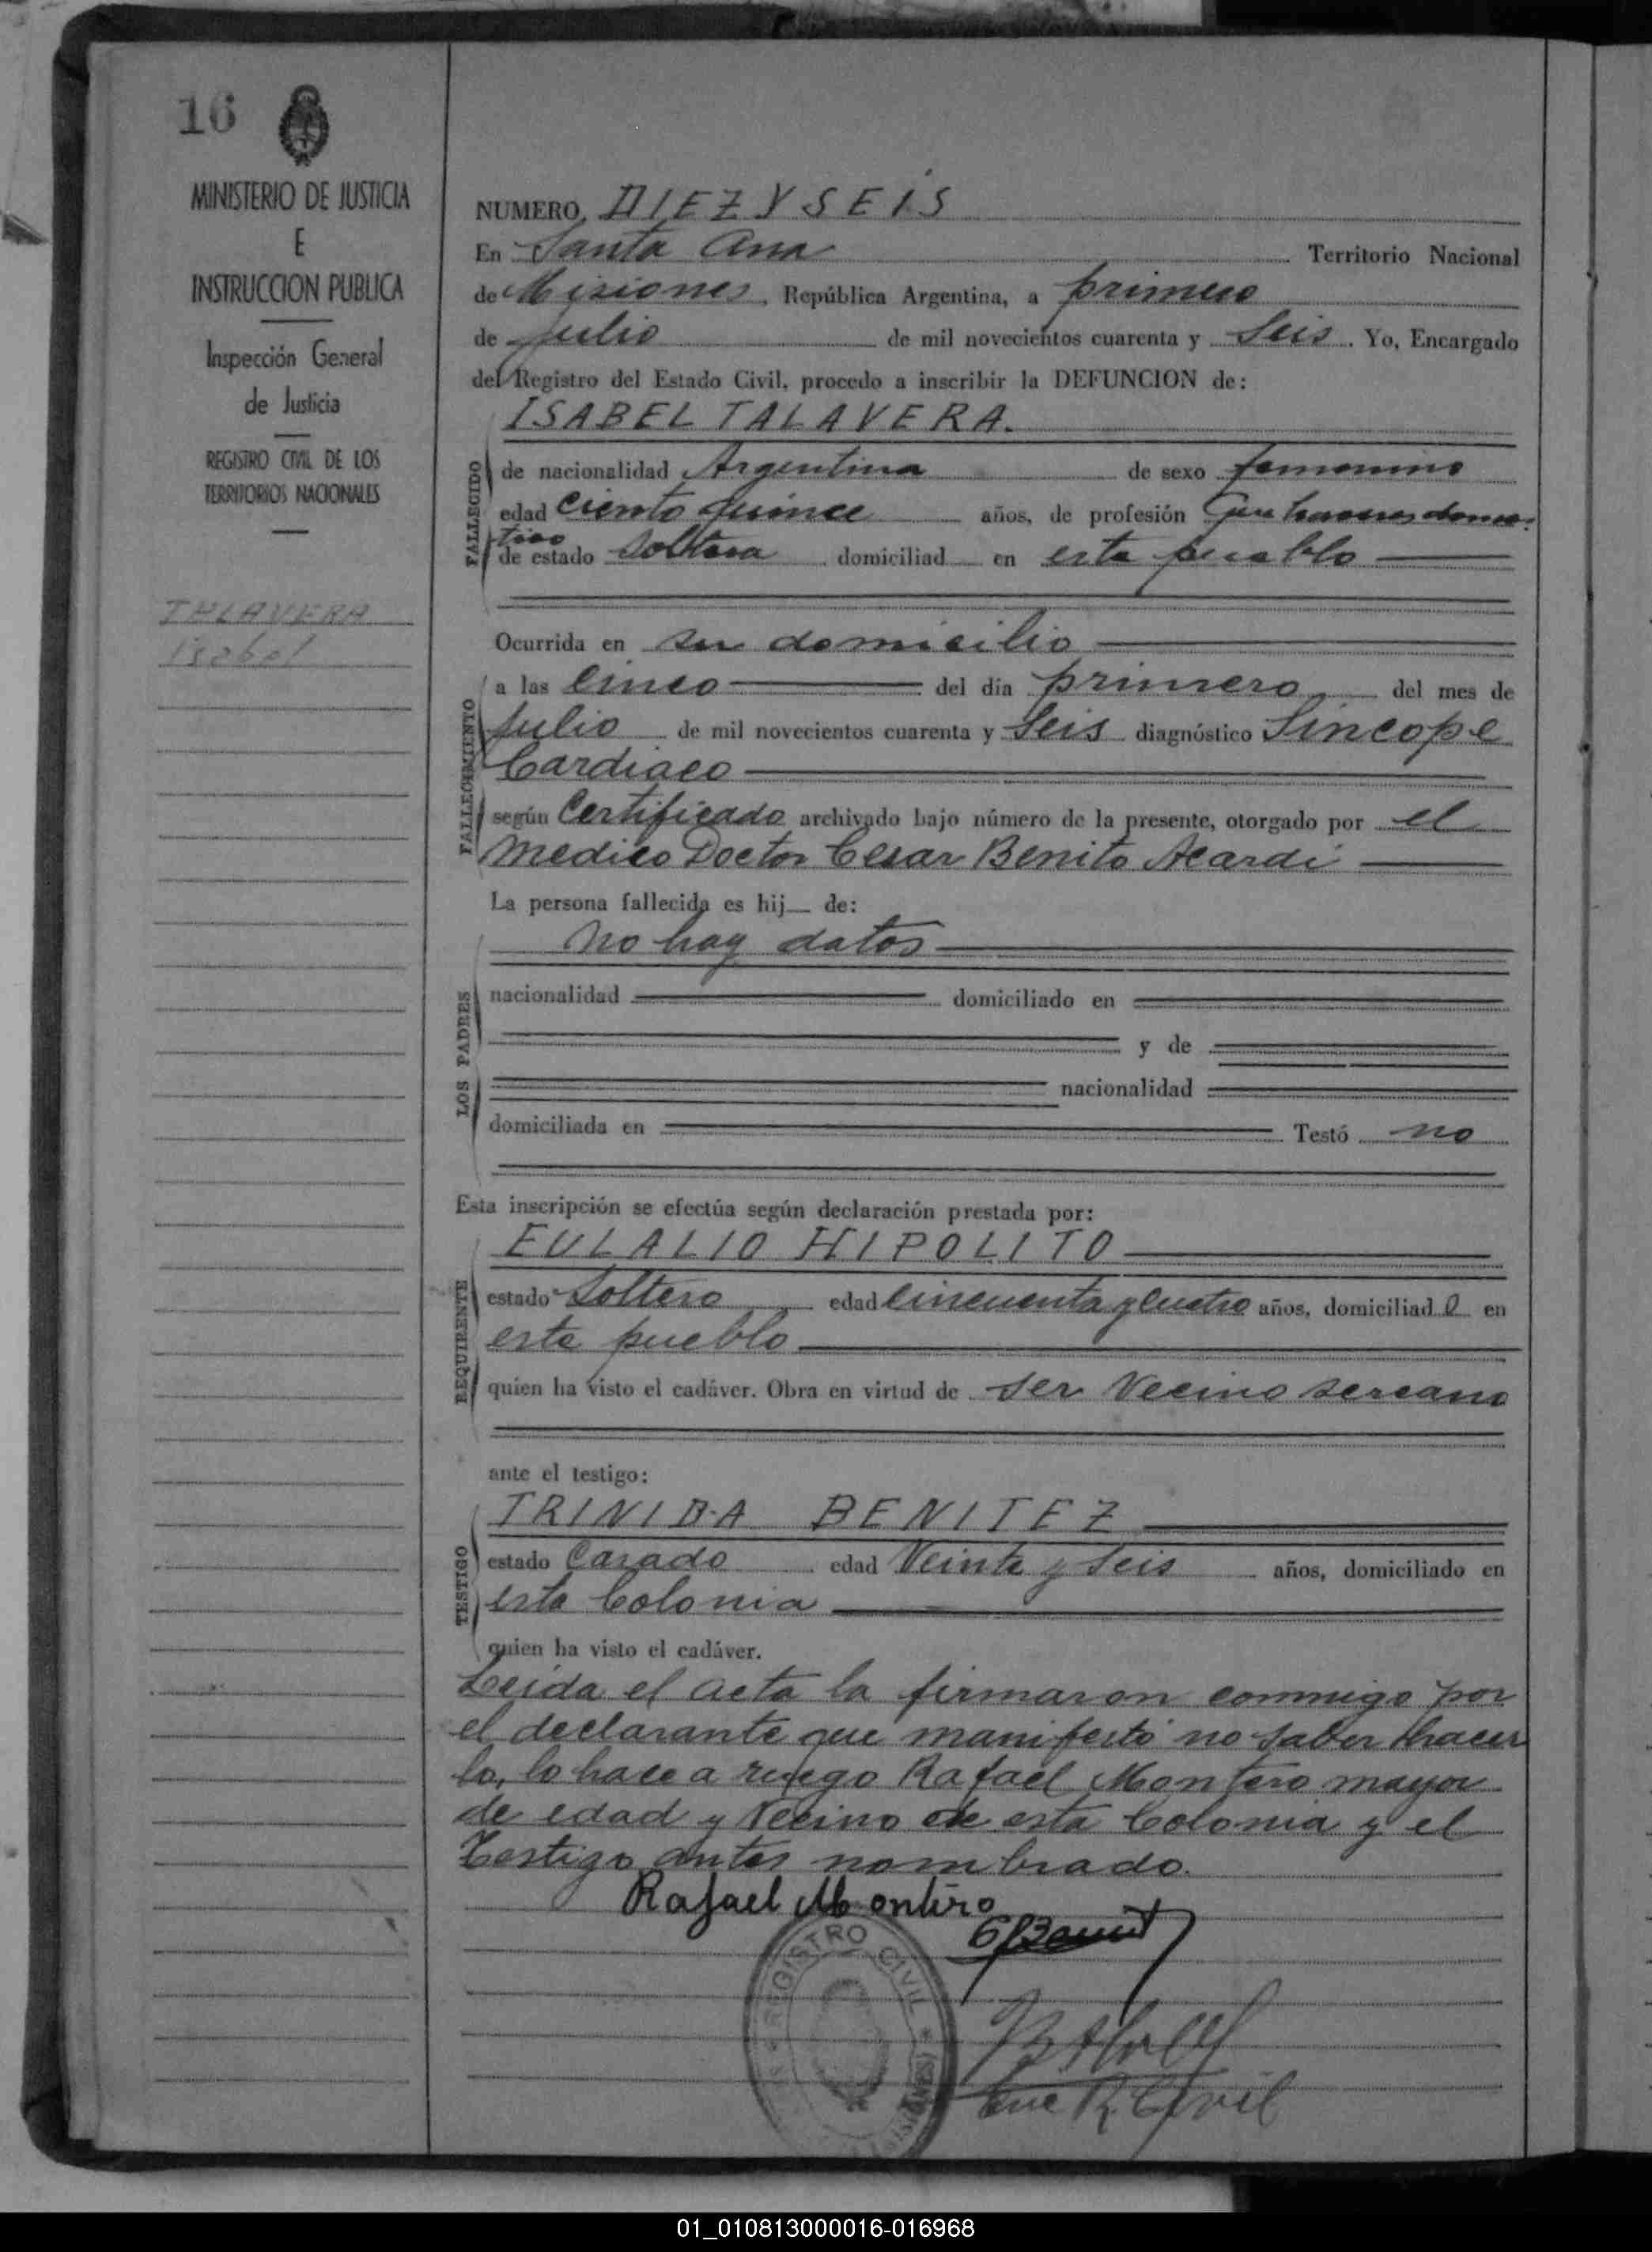 16
MINISTERIO DE JUSTICIA
E
INSTRUCCION PUBLICA
Inspección General
de Justicia
REGISTRO CIVIL DE LOS
TERRITORIOS NACIONALES
TALAVERA
Isabel
NUMERO, DIEZ Y SEIS
En Santa Ana Territorio Nacional
de Misiones, República Argentina, a primero
de Julio de mil novecientos cuarenta y Seis. Yo, Encargado
del Registro del Estado Civil, procedo a inscribir la DEFUNCION de:
ISABEL TALAVERA.
FALLECIDO
de nacionalidad Argentina de sexo femenino
edad Ciento quince años, de profesión
de estado Soltera domiciliad en este pueblo
Ocurrida en su domicilio
FALLECIMIENTO
a las Cinco del día primero del mes de
Julio de mil novecientos cuarenta y Seis diagnóstico Sincope
Cardiaco
según Certificado archivado bajo número de la presente, otorgado por el
Medico Doctor Cesar Benito Acardi
La persona fallecida es hij de:
LOS PADRES
No hay datos
nacionalidad domiciliado en
y de
nacionalidad
domiciliada en Testó no
Esta inscripción se efectúa según declaración prestada por:
REQUIRENTE
EULALIO HIPOLITO
estado Soltero edad Cincuenta y Cuatro años, domiciliad o en
este pueblo
quien ha visto el cadáver. Obra en virtud de ser Vecino sercano
ante el testigo:
TESTIGO
TRINIDA BENITEZ
estado Casado edad Veinte y Seis años, domiciliado en
esta Colonia
quien ha visto el cadáver.
Leida el acta la firmaron conmigo por
el declarante que manifestó no saber hacer
lo, lo hace a ruego Rafael Montero mayor
de edad y Vecino de esta Colonia y el
Testigo antes nombrado.
Rafael Montero
REGISTRO CIVIL
R. Civil
01_010813000016-016968